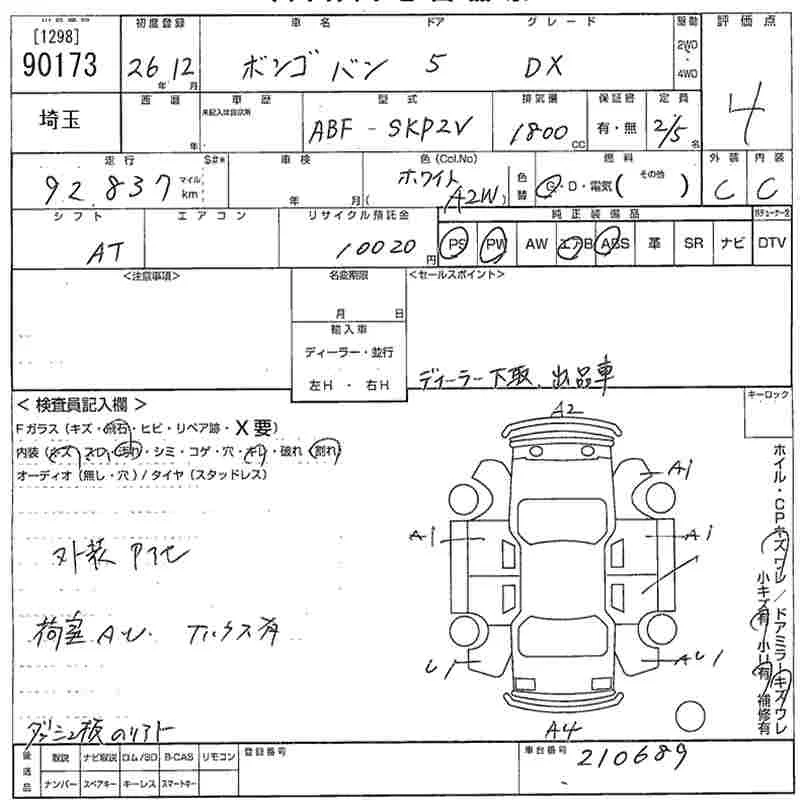 [1298]
90173
初度登録 車名 ドア グレード 駆動 評価点
26年12月 ボンゴ バン 5 DX 2WD・4WD
4
埼玉
西暦 車歴 型式 排気量 保証書 定員
年 未記入は自家用 ABF-SKP2V 1800CC 有・無 2/5名
走行 S#* 車検 色(Col.No) 燃料 外装 内装
92,837 マイル km 年 月 ホワイト (A2W) 色替 G・D・電気( その他 ) C C
シフト エアコン リサイクル預託金 純正装備品
AT 10020円 PS PW AW エアB ABS 革 SR ナビ DTV
<注意事項> 名変期限 <セールスポイント>
月 日
輸入車
ディーラー・並行
左H・右H ディーラー下取、出品車
<検査員記入欄> A2 キーロック
Fガラス(キズ・飛石・ヒビ・リペア跡・X要)
内装(キズ・スレ・汚れ・シミ・コゲ・穴・キレ・破れ・割れ)
オーディオ(無し・穴)/タイヤ(スタッドレス)
A1
A1 A1
外装
荷室AU.
U1 AU1
A4
ホイル・CPキズワレ/ドアミラーキズワレ
小キズ有 小U有 補修有
後送品 取説 ナビ取説 ロム/SD B-CAS リモコン 登録番号 車台番号 210689
ナンバー スペアキー キーレス スマートキー